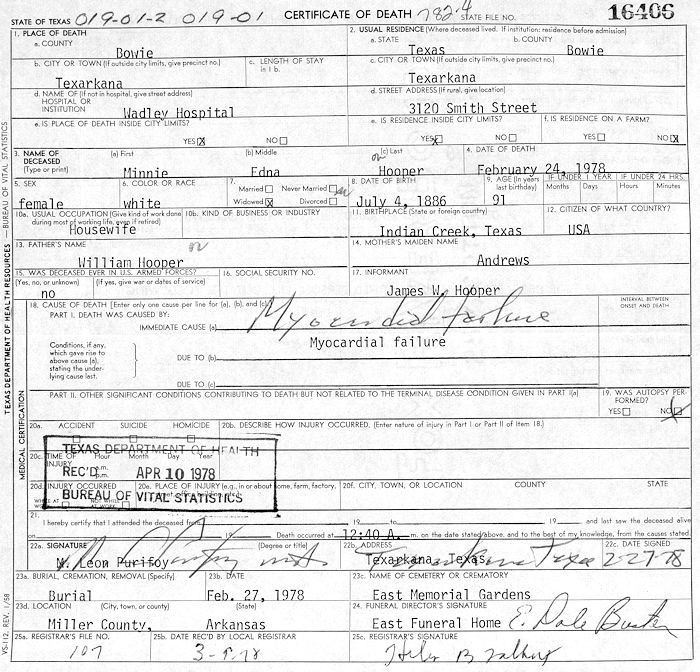 STATE OF TEXAS 019-01-2 019-01 CERTIFICATE OF DEATH 782.4 STATE FILE NO. 16406
1. PLACE OF DEATH
a. COUNTY
Bowie
2. USUAL RESIDENCE (Where deceased lived. If institution: residence before admission)
a. STATE b. COUNTY
Texas Bowie
b. CITY OR TOWN (If outside city limits, give precinct no.) c. LENGTH OF STAY in 1 b.
Texarkana
c. CITY OR TOWN (If outside city limits, give precinct no.)
Texarkana
d. NAME OF (If not in hospital, give street address)
HOSPITAL OR
INSTITUTION
Wadley Hospital
d. STREET ADDRESS (If rural, give location)
3120 Smith Street
e. IS PLACE OF DEATH INSIDE CITY LIMITS?
YES X NO
e. IS RESIDENCE INSIDE CITY LIMITS? f. IS RESIDENCE ON A FARM?
YES X NO YES NO X
3. NAME OF DECEASED (Type or print) (a) First (b) Middle (c) Last
Minnie Edna Hooper
4. DATE OF DEATH
February 24, 1978
5. SEX
female
6. COLOR OR RACE
white
7.
Married Never Married
Widowed X Divorced
8. DATE OF BIRTH
July 4, 1886
9. AGE (In years last birthday)
91
IF UNDER 1 YEAR IF UNDER 24 HRS.
Months Days Hours Minutes
10a. USUAL OCCUPATION (Give kind of work done during most of working life, even if retired)
Housewife
10b. KIND OF BUSINESS OR INDUSTRY
11. BIRTHPLACE (State or foreign country)
Indian Creek, Texas
12. CITIZEN OF WHAT COUNTRY?
USA
13. FATHER'S NAME
William Hooper
14. MOTHER'S MAIDEN NAME
Andrews
15. WAS DECEASED EVER IN U.S. ARMED FORCES?
(Yes, no, or unknown) (If yes, give war or dates of service)
no
16. SOCIAL SECURITY NO.
17. INFORMANT
James W. Hooper
18. CAUSE OF DEATH [Enter only one cause per line for (a), (b), and (c)]
INTERVAL BETWEEN
ONSET AND DEATH
PART I. DEATH WAS CAUSED BY:
IMMEDIATE CAUSE (a) Myocardial failure
Myocardial failure
Conditions, if any,
which gave rise to
above cause (a),
stating the under-
lying cause last.
DUE TO (b)
DUE TO (c)
PART II. OTHER SIGNIFICANT CONDITIONS CONTRIBUTING TO DEATH BUT NOT RELATED TO THE TERMINAL DISEASE CONDITION GIVEN IN PART I(a)
19. WAS AUTOPSY PER-
FORMED?
YES NO X
20a. ACCIDENT SUICIDE HOMICIDE
20b. DESCRIBE HOW INJURY OCCURRED. (Enter nature of injury in Part I or Part II of Item 18.)
20c. TIME OF INJURY Hour Month Day Year
a.m.
p.m.
TEXAS DEPARTMENT OF HEALTH
REC'D APR 10 1978
BUREAU OF VITAL STATISTICS
20d. INJURY OCCURRED
WHILE AT WORK NOT WHILE AT WORK
20e. PLACE OF INJURY (e.g., in or about home, farm, factory,
20f. CITY, TOWN, OR LOCATION COUNTY STATE
21.
I hereby certify that I attended the deceased from 19 to 19 and last saw the deceased alive
on 19 Death occurred at 12:40 A. m. on the date stated above, and to the best of my knowledge, from the causes stated
22a. SIGNATURE (Degree or title)
N. Leon Purifoy
22b. ADDRESS
Texarkana, Texas
Texarkana Texas
22c. DATE SIGNED
2-27-78
23a. BURIAL, CREMATION, REMOVAL (Specify)
Burial
23b. DATE
Feb. 27, 1978
23c. NAME OF CEMETERY OR CREMATORY
East Memorial Gardens
23d. LOCATION (City, town, or county) (State)
Miller County, Arkansas
24. FUNERAL DIRECTOR'S SIGNATURE
East Funeral Home E. Dale
25a. REGISTRAR'S FILE NO.
107
25b. DATE REC'D BY LOCAL REGISTRAR
25c. REGISTRAR'S SIGNATURE
TEXAS DEPARTMENT OF HEALTH RESOURCES — BUREAU OF VITAL STATISTICS
MEDICAL CERTIFICATION
VS-112, REV. 1/58